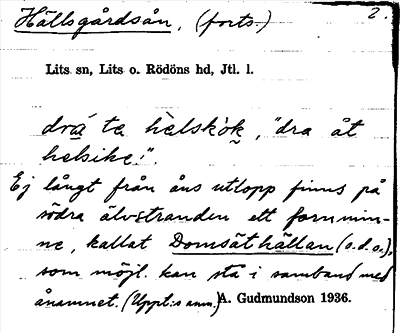 Hällsgårdsån, (forts.) 2.
Lits sn, Lits o. Rödöns hd, Jtl. l.
drá te hèlskòk, "dra åt
helsike!".
Ej långt från åns utlopp finns på
södra älvstranden ett fornmin-
ne, kallat Domsäthällan (o.d.o.),
som möjl. kan stå i samband med
ånamnet. (Uppt:s anm.) A. Gudmundson 1936.